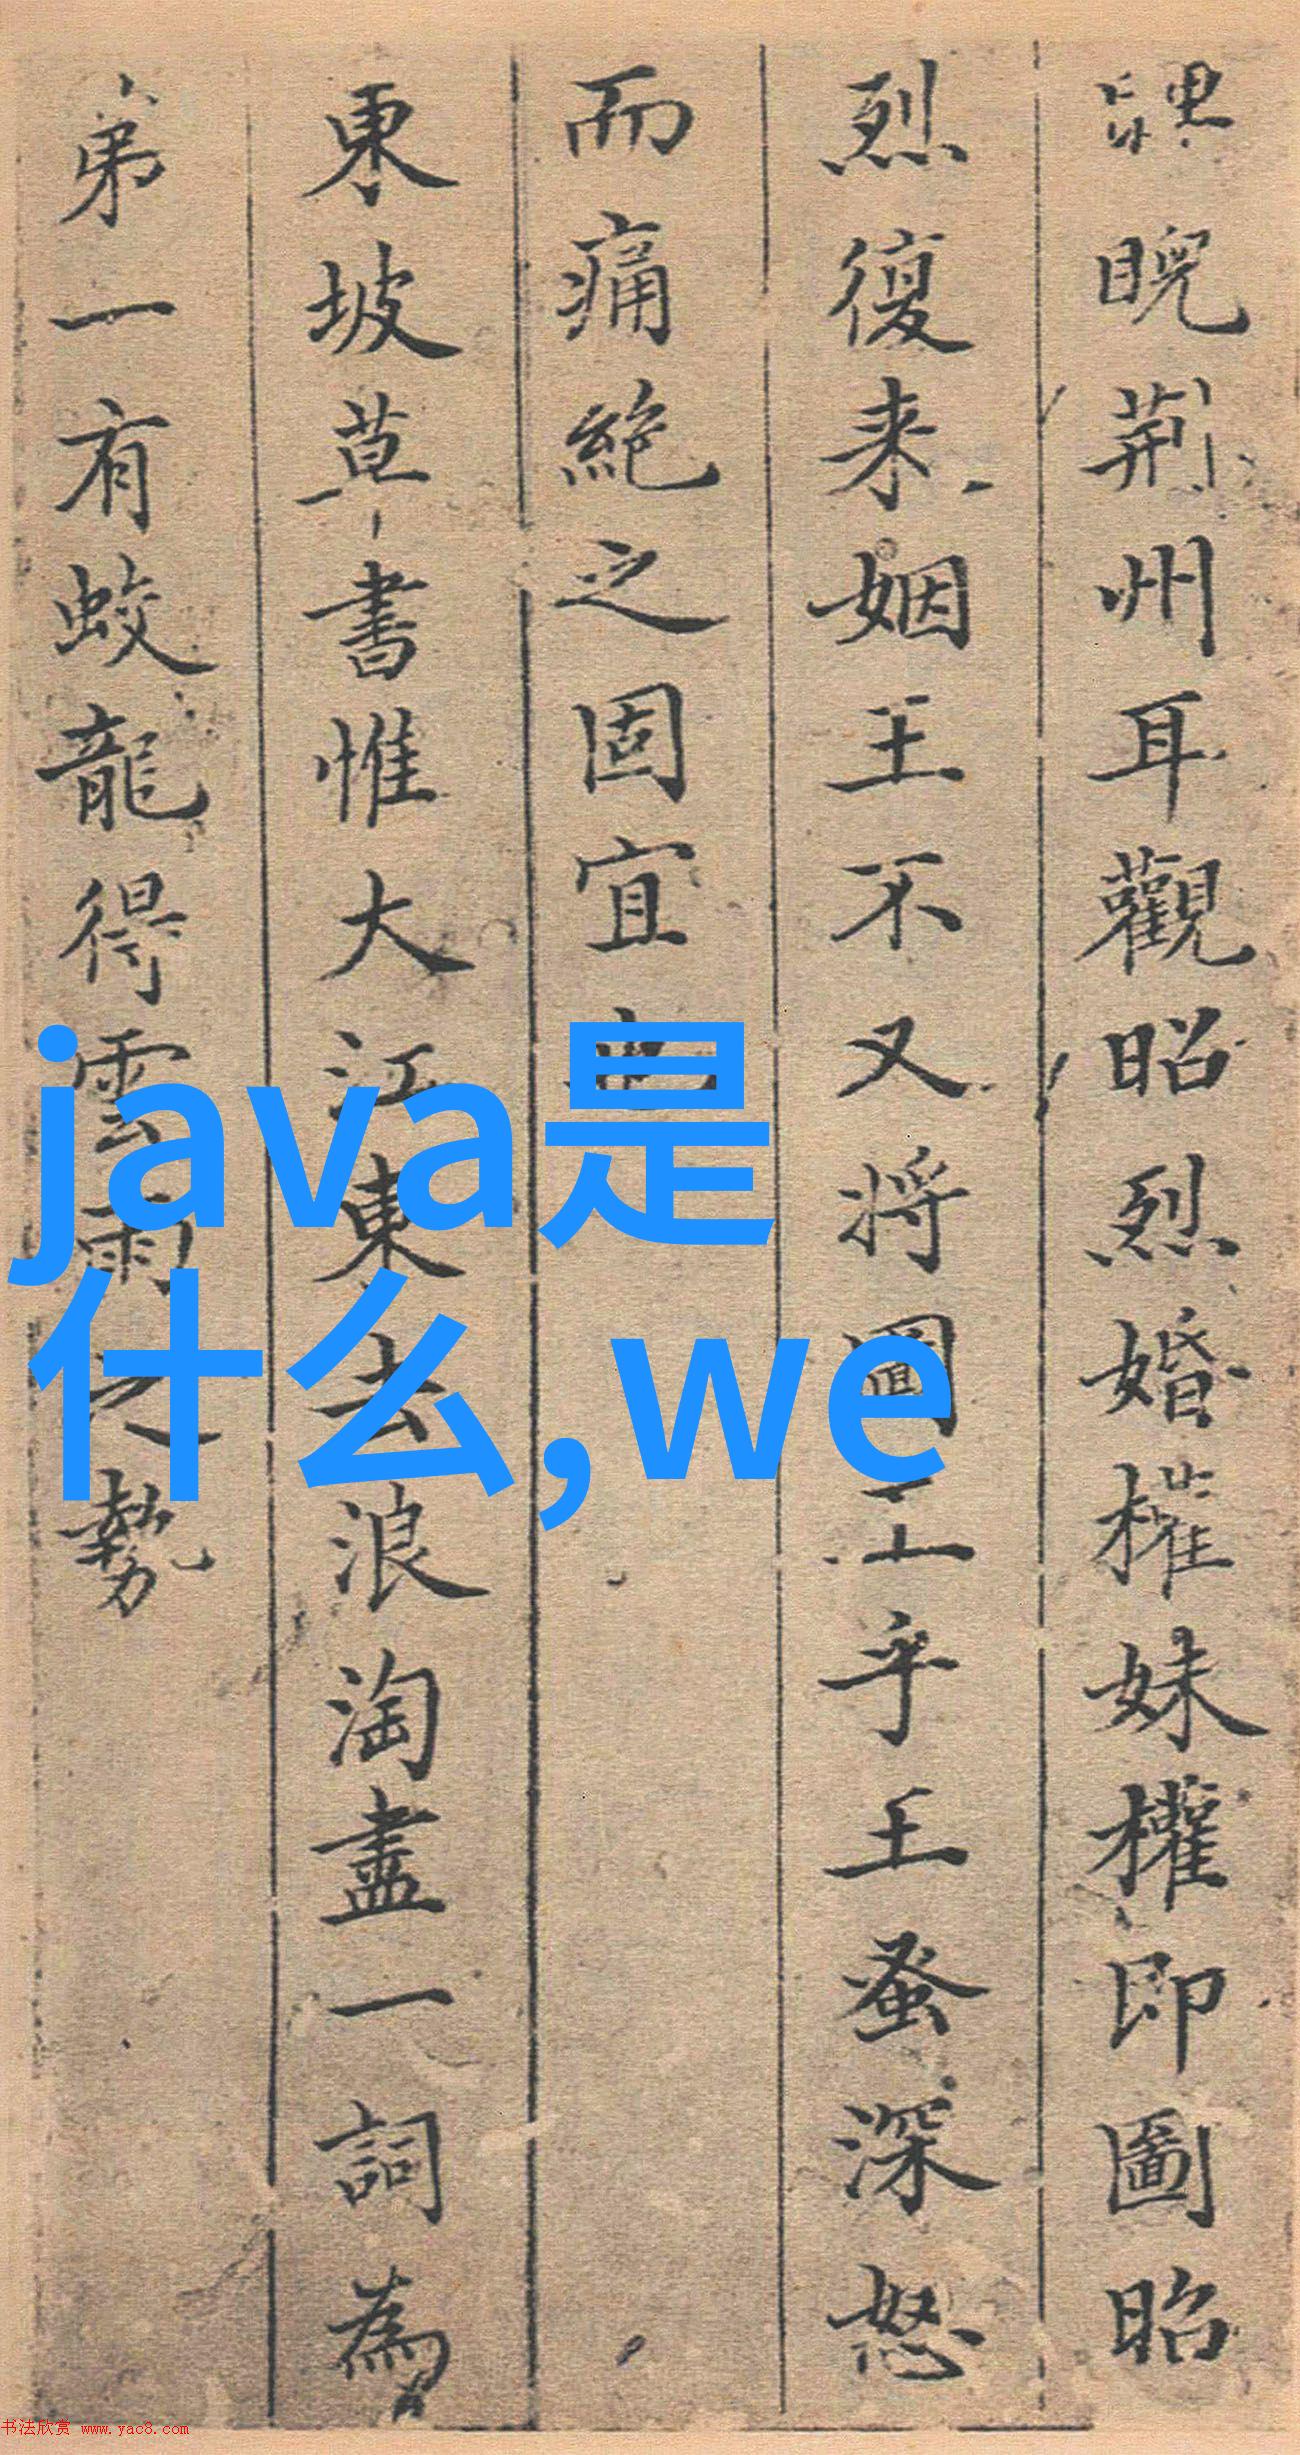 睨荊州耳觀昭烈婚權妹權即圖昭
烈復来姻王不又将圖王乎王蚤深怒
而痛絶之固宜也
東坡草書惟大江東去浪淘盡一詞為
弟一有蛟龍得雲雨之勢
java是
什么,we
书法欣赏 www.yac8.com